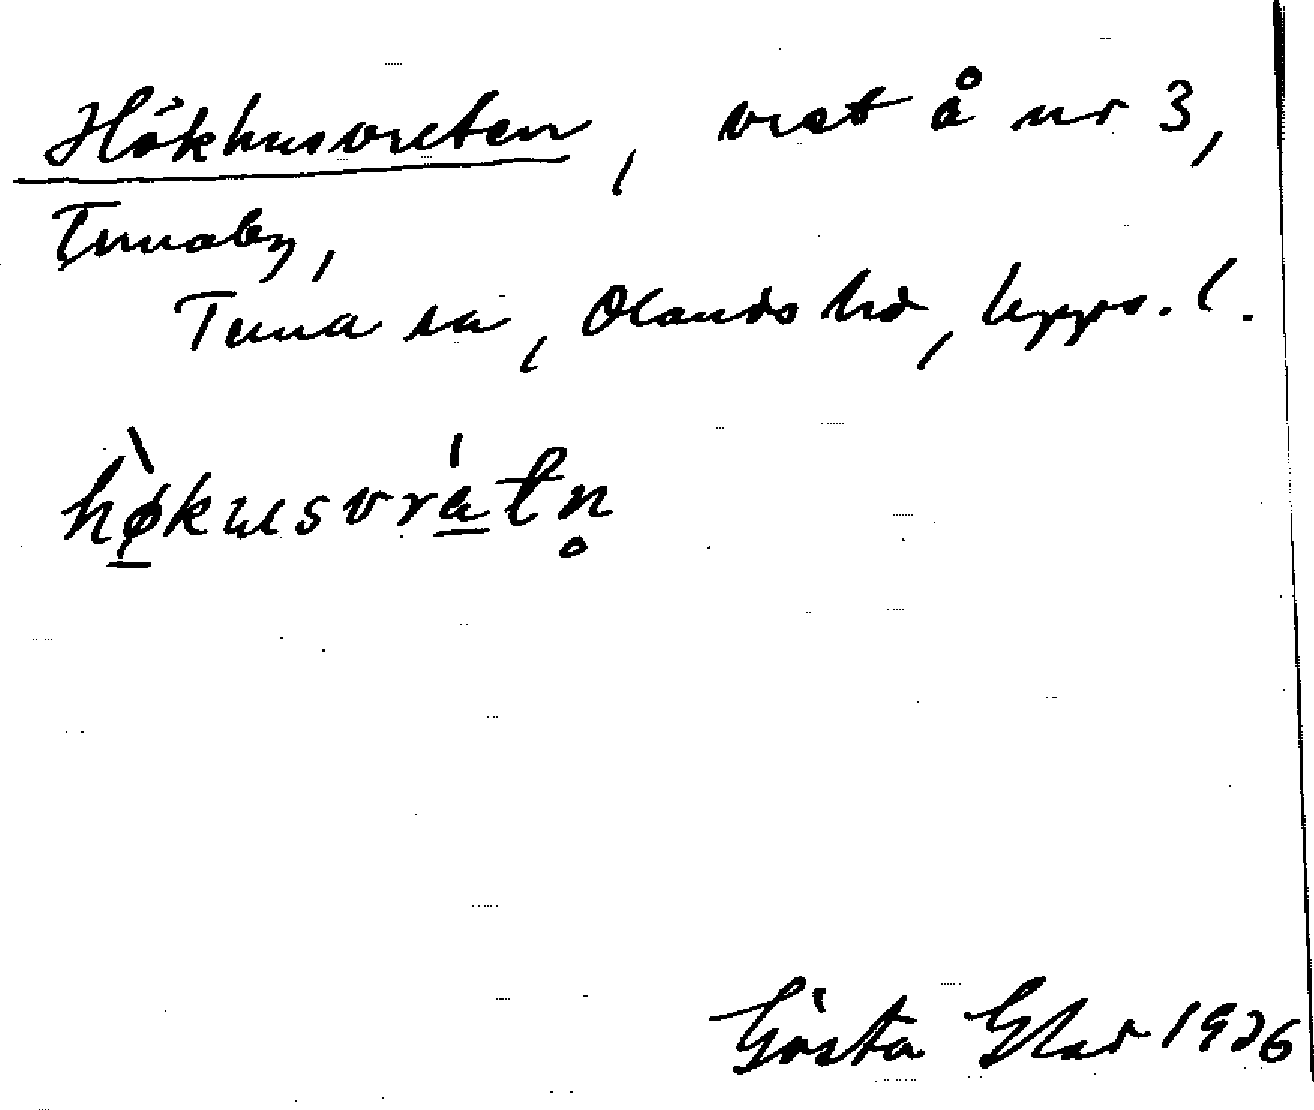 Hökhusvreten, vret å nr 3,
Tunaby,
Tuna sn, Olands hd, Upps. l.
hø̀kusvrátn̥
Gösta Elar 1926